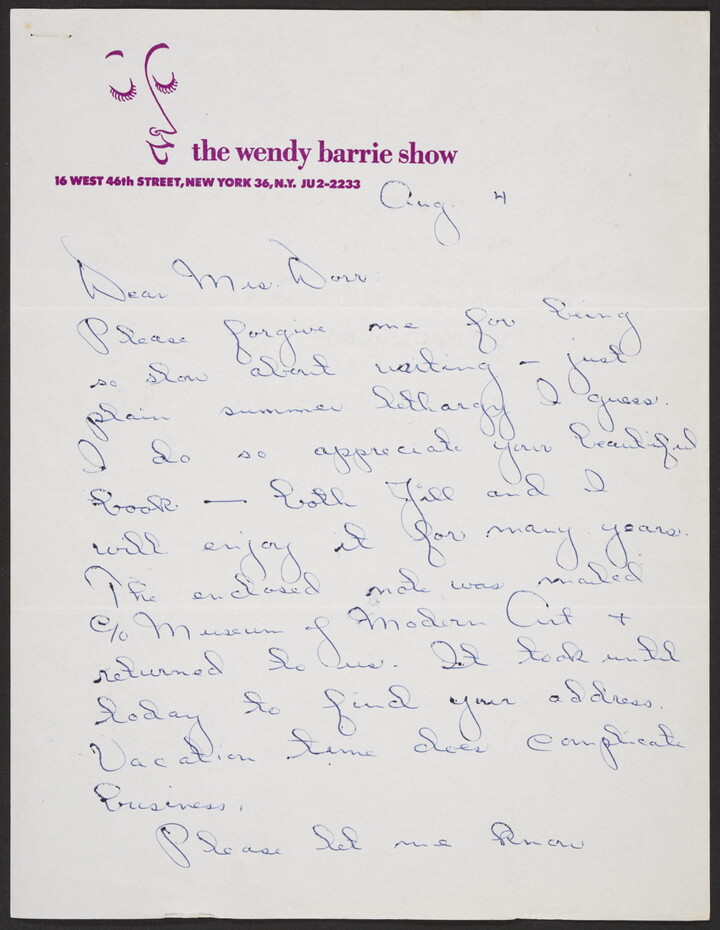 the wendy barrie show
16 WEST 46th STREET, NEW YORK 36, N.Y. JU 2-2233
Aug. 4
Dear Mrs. Dorr
Please forgive me for being
so slow about writing — just
plain summer lethargy I guess.
I do so appreciate your beautiful
book — both Jill and I
will enjoy it for many years.
The enclosed note was mailed
c/o Museum of Modern Art +
returned to us. It took until
today to find your address.
Vacation time does complicate
business.
Please let me know